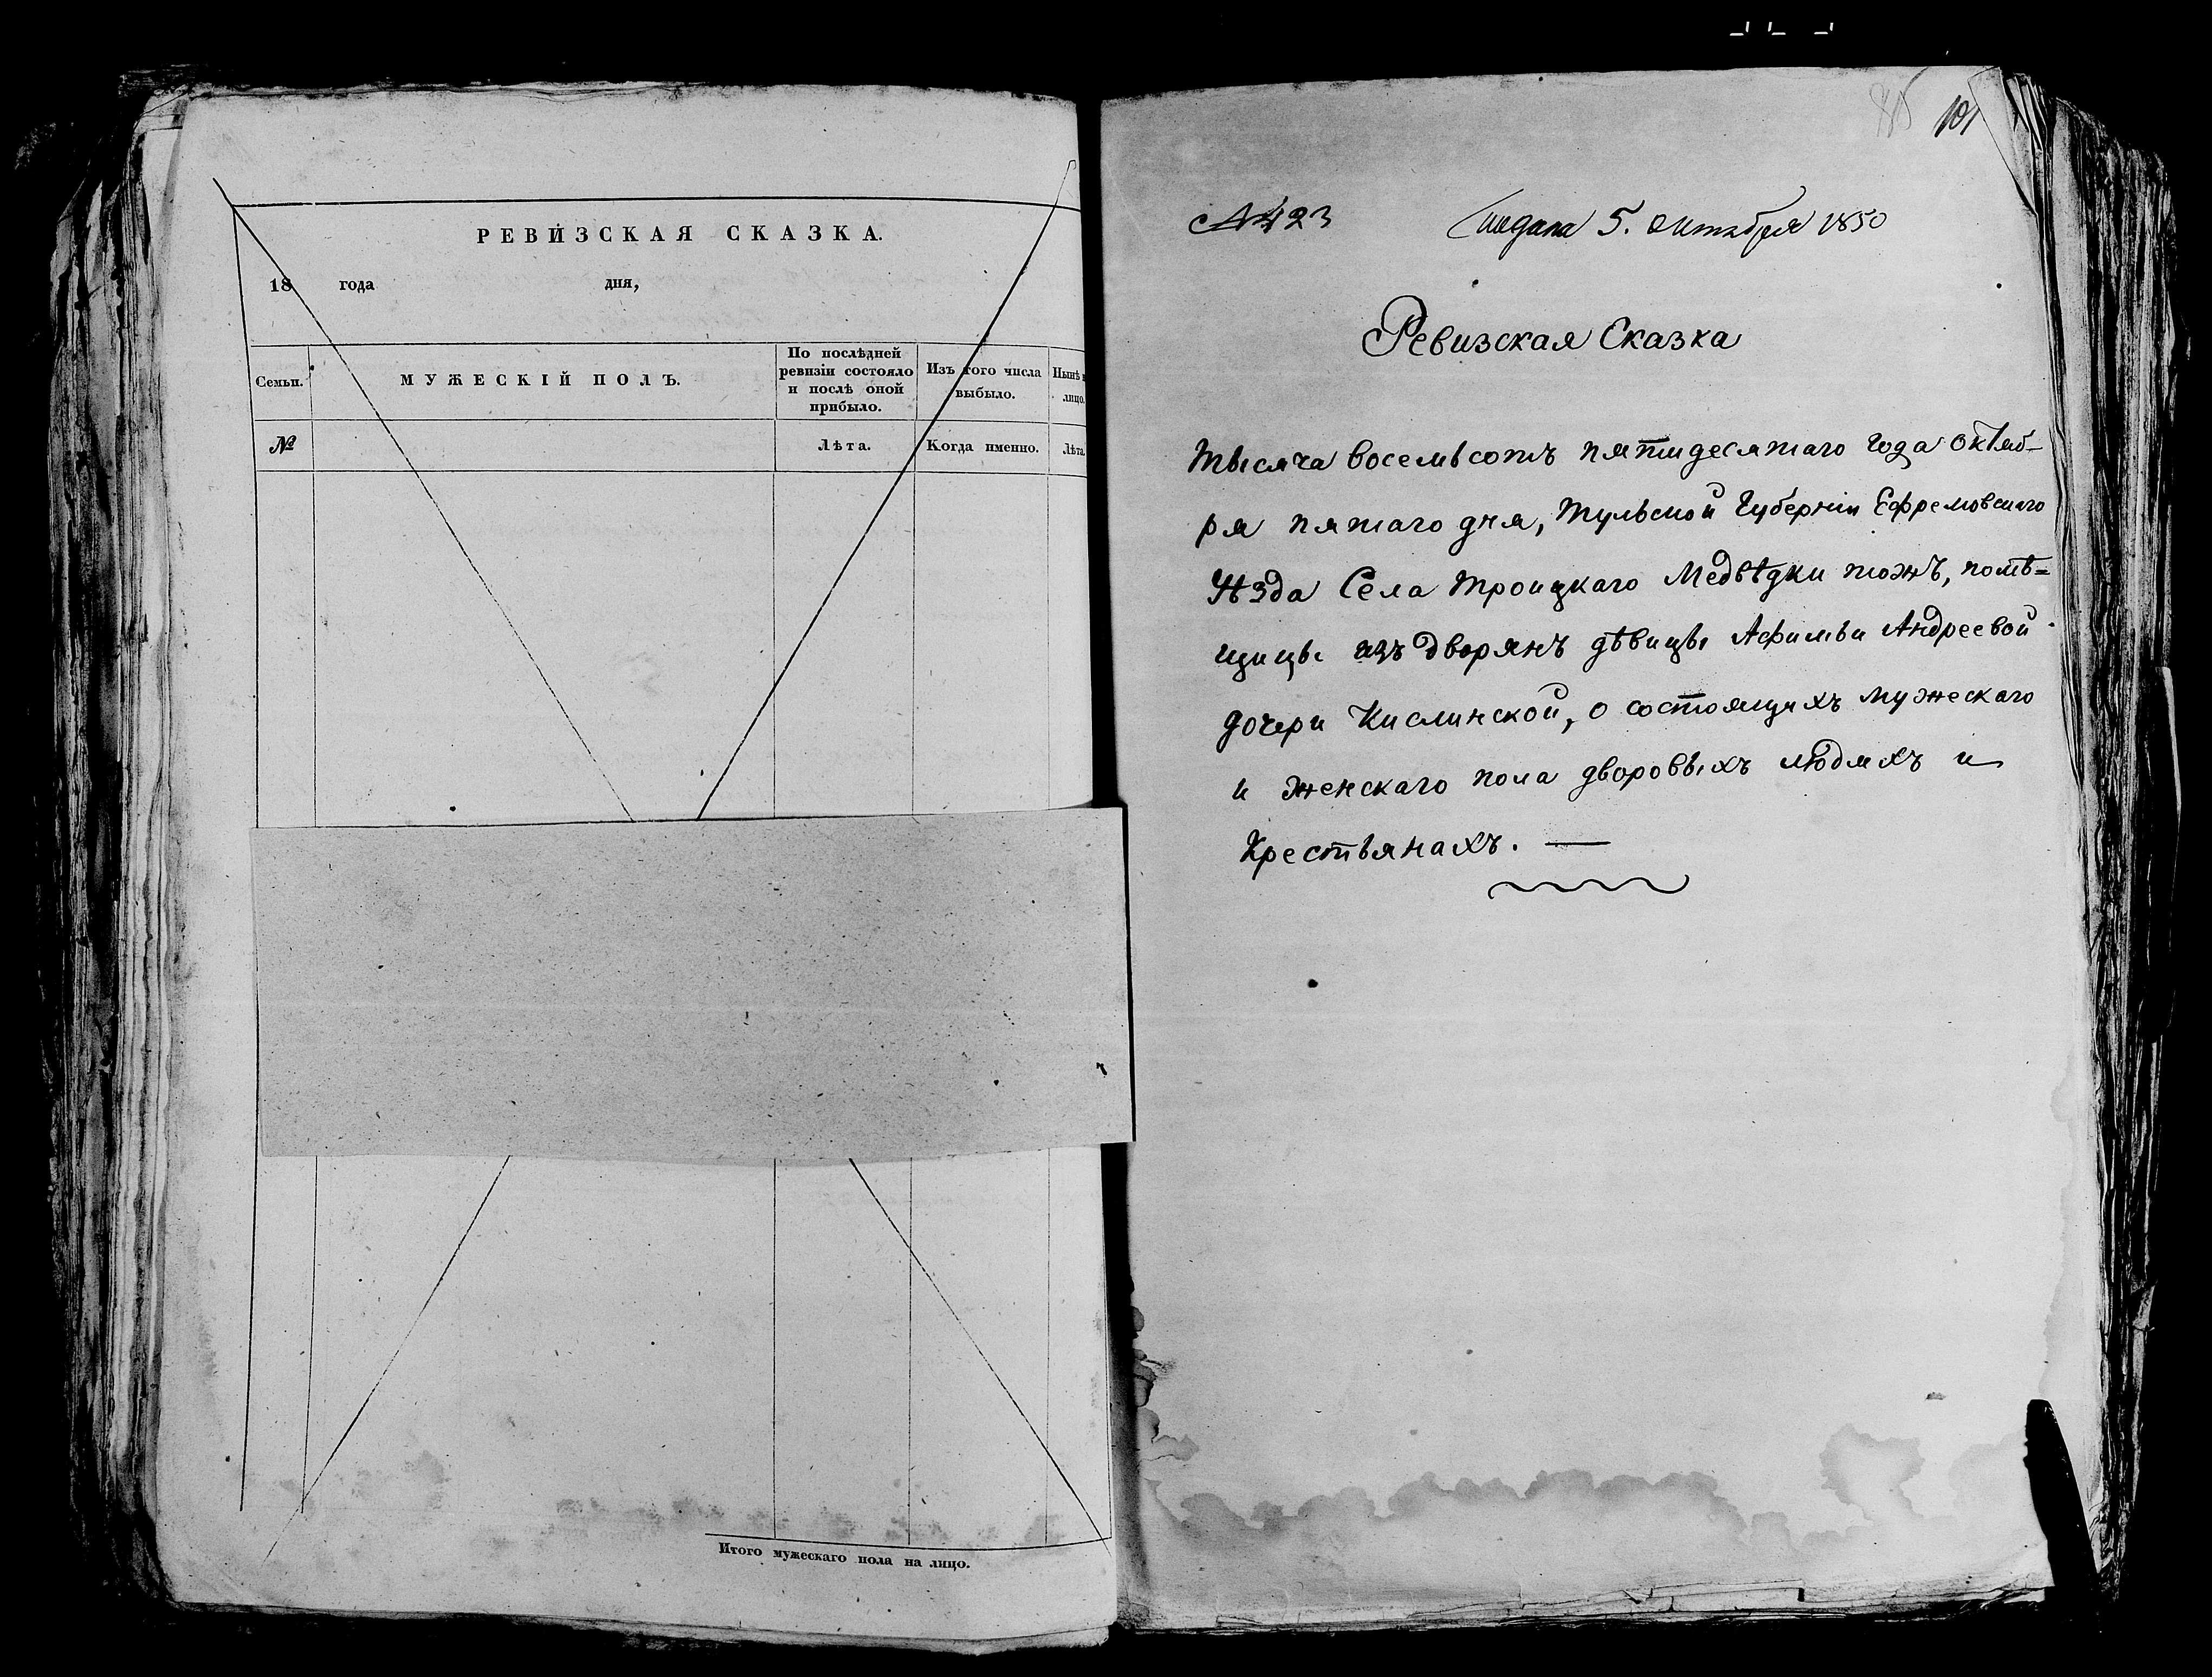 РЕВИЗСКАЯ СКАЗКА.
18 года дня,
Семьи.
МУЖЕСКІЙ ПОЛЪ.
По послѣдней
ревизіи состояло
и послѣ оной
прибыло.
Изъ того числа
выбыло.
Нынѣ
лицо.
№
Лѣта.
Когда именно.
Лѣта
Итого мужескаго пола на лицо.
85 101
№ 423
Подана 5. Октября 1850
Ревизская Сказка
Тысяча восемьсотъ пятидесятаго года Октяб-
ря пятаго дня, Тульской Губерніи Ефремовскаго
Уѣзда Села Троицкаго Медвѣдки тожъ, помѣ=
щицы изъ дворянъ дѣвицы Афимьи Андреевой
дочери Кислинской, о состоящихъ мужескаго
и женскаго пола дворовыхъ людяхъ и
Крестьянахъ. —